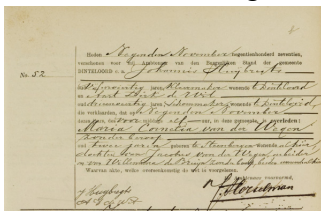 Heden Negenden November negentienhonderd zeventien,
verschenen voor Mij, Ambtenaar van den Burgerlijken Stand der gemeente
No. 52
DINTELOORD c. a. Johannis Huijbregts
oud Zeventig jaren, Klerenmaker wonende te Dinteloord
en Aart Dirk de Wit
oud jaren, Schoenmaker wonende te Dinteloord,
die verklaarden, dat op Negenden November
des voormiddags te elf ure, in deze gemeente, is overleden:
Maria Cornelia van der Wegen
zonder beroep
oud twee jaren, geboren te Steenbergen wonende alhier
dochter van Jacobus van der Wegen, arbeider
en van de beiden wonende alhier
Waarvan akte, welke overeenkomstig de wet is voorgelezen.
J Huijbregts
A D de Wit